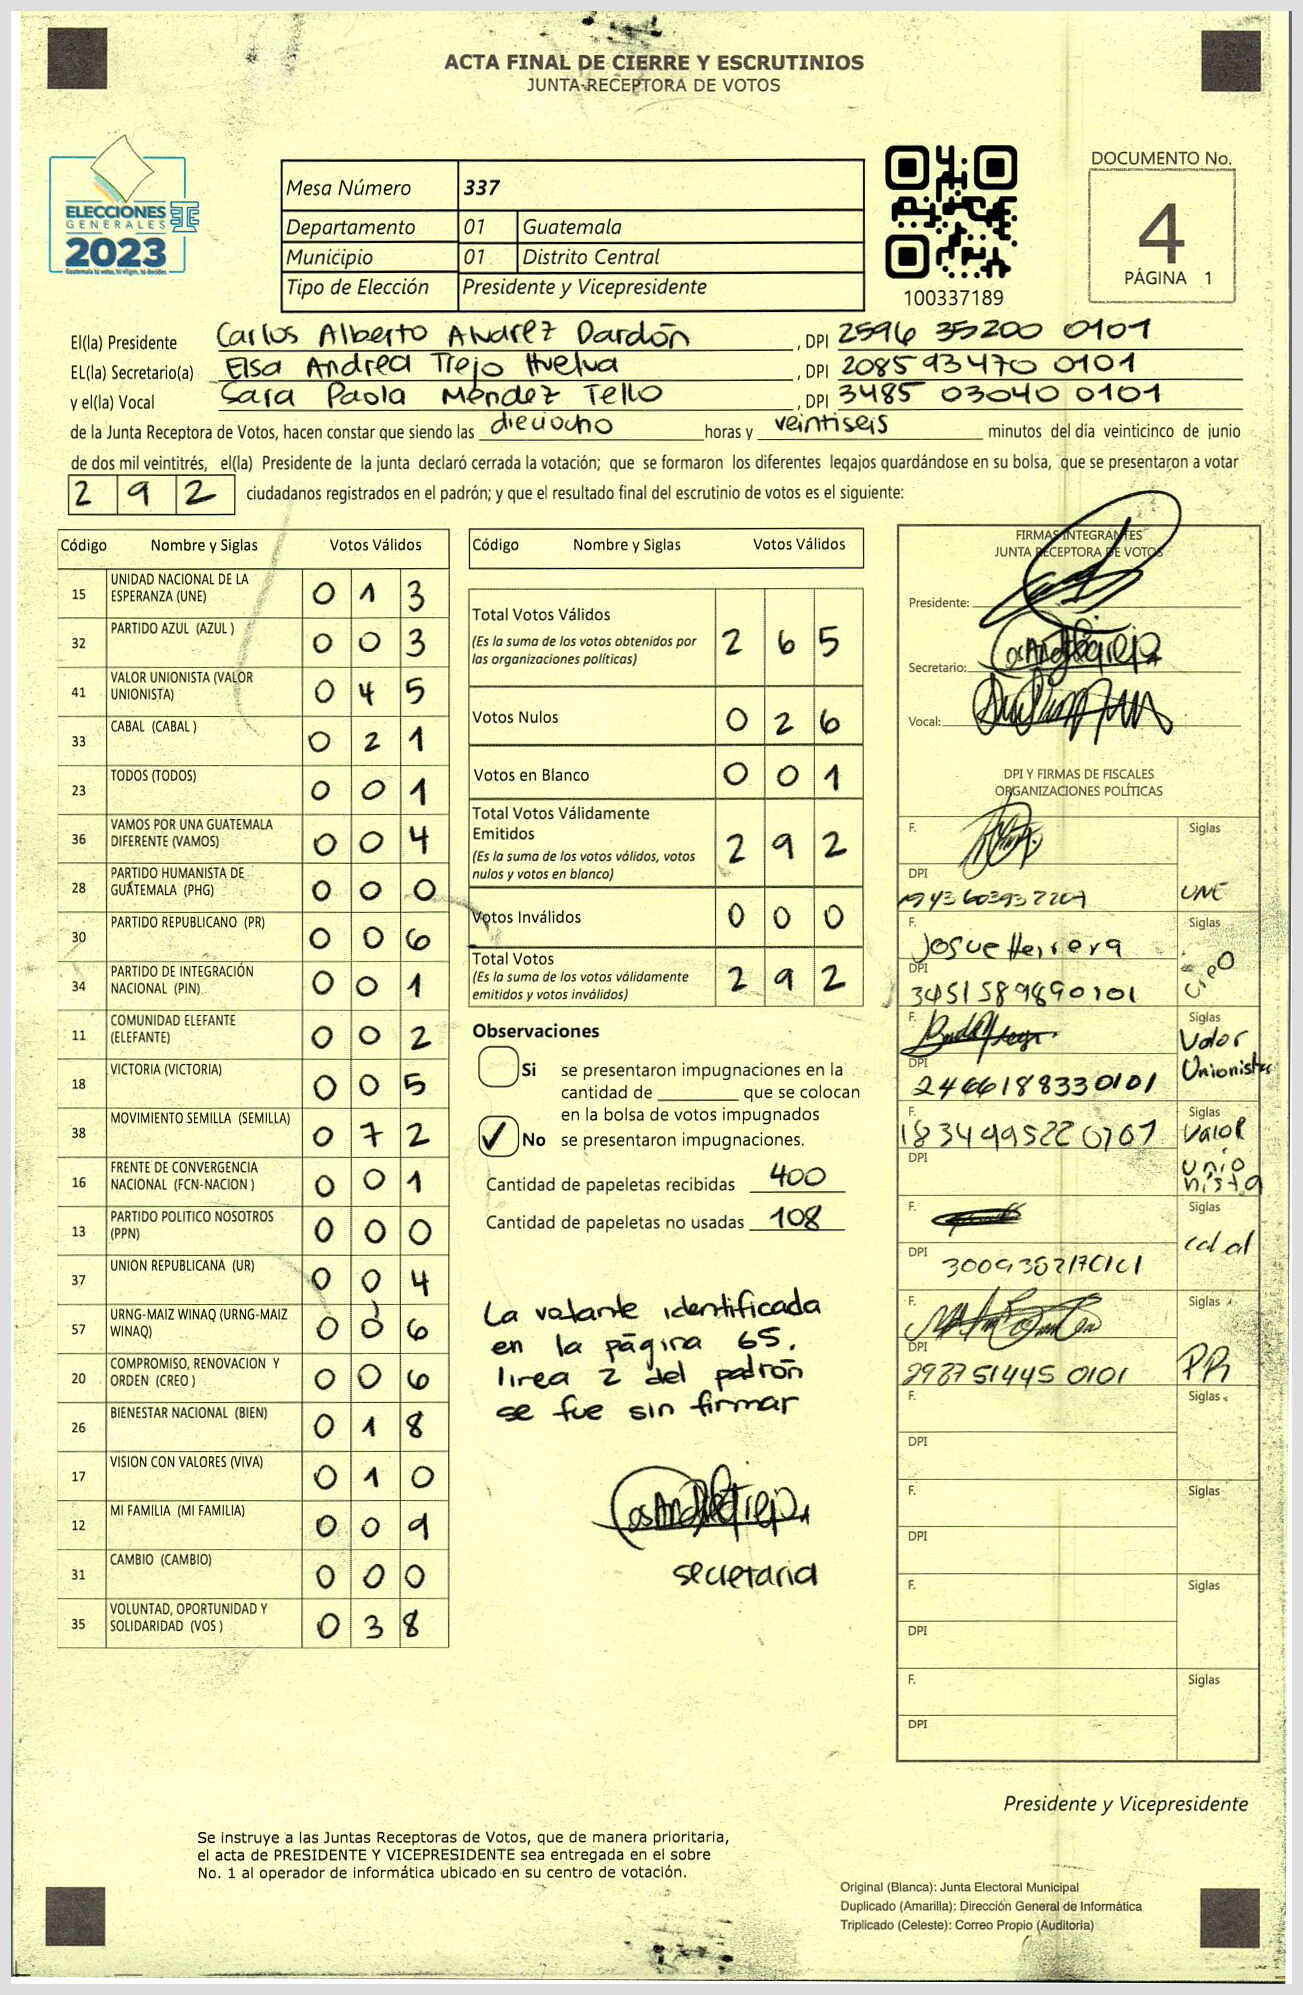 ACTA FINAL DE CIERRE Y ESCRUTINIOS
JUNTA RECEPTORA DE VOTOS
ELECCIONES
GENERALES
2023
Guatemala tú votas, tú eliges, tú decides
Mesa Número 337
Departamento 01 Guatemala
Municipio 01 Distrito Central
Tipo de Elección Presidente y Vicepresidente
100337189
DOCUMENTO No.
4
PÁGINA 1
El(la) Presidente Carlos Alberto Alvarez Dardón, DPI 2596 35200 0101
EL(la) Secretario(a) Elsa Andrea Trejo Huelva, DPI 2085 93470 0101
y el(la) Vocal Sara Paola Méndez Tello, DPI 3485 03040 0101
de la Junta Receptora de Votos, hacen constar que siendo las dieciocho horas y veintiseis minutos del día veinticinco de junio
de dos mil veintitrés, el(la) Presidente de la junta declaró cerrada la votación; que se formaron los diferentes legajos quardándose en su bolsa, que se presentaron a votar
292 ciudadanos registrados en el padrón; y que el resultado final del escrutinio de votos es el siguiente:
Código Nombre y Siglas Votos Válidos
15 UNIDAD NACIONAL DE LA ESPERANZA (UNE) 013
32 PARTIDO AZUL (AZUL ) 003
41 VALOR UNIONISTA (VALOR UNIONISTA) 045
33 CABAL (CABAL ) 021
23 TODOS (TODOS) 001
36 VAMOS POR UNA GUATEMALA DIFERENTE (VAMOS) 004
28 PARTIDO HUMANISTA DE GUATEMALA (PHG) 000
30 PARTIDO REPUBLICANO (PR) 006
34 PARTIDO DE INTEGRACIÓN NACIONAL (PIN) 001
11 COMUNIDAD ELEFANTE (ELEFANTE) 002
18 VICTORIA (VICTORIA) 005
38 MOVIMIENTO SEMILLA (SEMILLA) 072
16 FRENTE DE CONVERGENCIA NACIONAL (FCN-NACION ) 001
13 PARTIDO POLITICO NOSOTROS (PPN) 000
37 UNION REPUBLICANA (UR) 004
57 URNG-MAIZ WINAQ (URNG-MAIZ WINAQ) 006
20 COMPROMISO, RENOVACION Y ORDEN (CREO ) 006
26 BIENESTAR NACIONAL (BIEN) 018
17 VISION CON VALORES (VIVA) 010
12 MI FAMILIA (MI FAMILIA) 009
31 CAMBIO (CAMBIO) 000
35 VOLUNTAD, OPORTUNIDAD Y SOLIDARIDAD (VOS ) 038
Código Nombre y Siglas Votos Válidos
Total Votos Válidos 265
(Es la suma de los votos obtenidos por
las organizaciones políticas)
Votos Nulos 026
Votos en Blanco 001
Total Votos Válidamente
Emitidos 292
(Es la suma de los votos válidos, votos
nulos y votos en blanco)
Votos Inválidos 000
Total Votos 292
(Es la suma de los votos válidamente
emitidos y votos inválidos)
Observaciones
Si se presentaron impugnaciones en la
cantidad de ________ que se colocan
en la bolsa de votos impugnados
✓ No se presentaron impugnaciones.
Cantidad de papeletas recibidas 400
Cantidad de papeletas no usadas 108
La votante identificada
en la página 65,
linea 2 del padrón
se fue sin firmar
secretaria
FIRMAS INTEGRANTES
JUNTA RECEPTORA DE VOTOS
Presidente:
Secretario:
Vocal:
DPI Y FIRMAS DE FISCALES
ORGANIZACIONES POLÍTICAS
F. Siglas
DPI
UNE
F. Josue Herrera Siglas
DPI 3451589890101 Creo
F. Siglas
DPI 2466188330101 Valor Unionista
F. 1834995220707 Siglas
DPI Valor Unionista
F. Siglas
DPI cabal
F. Siglas
DPI 2987514450101 PR
F. Siglas
DPI
F. Siglas
DPI
F. Siglas
DPI
F. Siglas
DPI
Presidente y Vicepresidente
Se instruye a las Juntas Receptoras de Votos, que de manera prioritaria,
el acta de PRESIDENTE Y VICEPRESIDENTE sea entregada en el sobre
No. 1 al operador de informática ubicado en su centro de votación.
Original (Blanca): Junta Electoral Municipal
Duplicado (Amarilla): Dirección General de Informática
Triplicado (Celeste): Correo Propio (Auditoria)